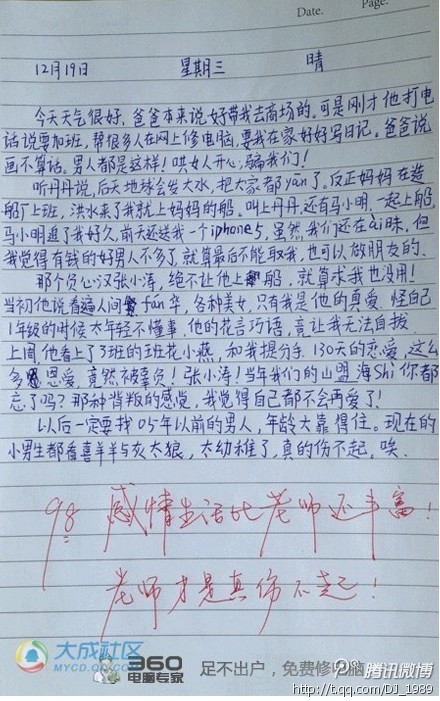 Date.
Page.
12月19日 星期三 晴
今天天气很好,爸爸本来说好带我去商场的。可是刚才他打电
话说要加班,帮很多人在网上修电脑,要我在家好好写日记。爸爸说
画不算话。男人都是这样!哄女人开心,骗我们!
听丹丹说,后天地球会发大水,把大家都yān了。反正妈妈在造
船厂上班,洪水来了我就上妈妈的船。叫上丹丹,还有马小明,一起上船,
马小明追了我好久,前天还送我一个iphone5,虽然我们还在ài昧,但
我觉得有钱的好男人不多了,就算最后不能取我,也可以做朋友的、
那个负心汉张小涛,绝不让他上船,就算求我也没用!
当初他说看遍人间fán华,各种美女,只有我是他的真爱,怪自己
1年级的时候太年轻不懂事,他的花言巧语,竟让我无法自拔
上周他看上了3班的班花小燕,和我提分手、130天的恋爱,这么
多恩爱,竟然被辜负!张小涛!当年我们的山盟海Shì你都
忘了吗?那种背叛的感觉,我觉得自己都不会再爱了!
以后一定要找05年以前的男人,年龄大靠得住。现在的
小男生都看喜羊羊与灰太狼,太幼稚了,真的伤不起,唉、
98 感情生活比老师还丰富!
老师才是真伤不起!
大成社区
MYCD.QQ.COM
360
电脑专家
足不出户,免费修电脑
腾讯微博
http://t.qq.com/DJ_1989